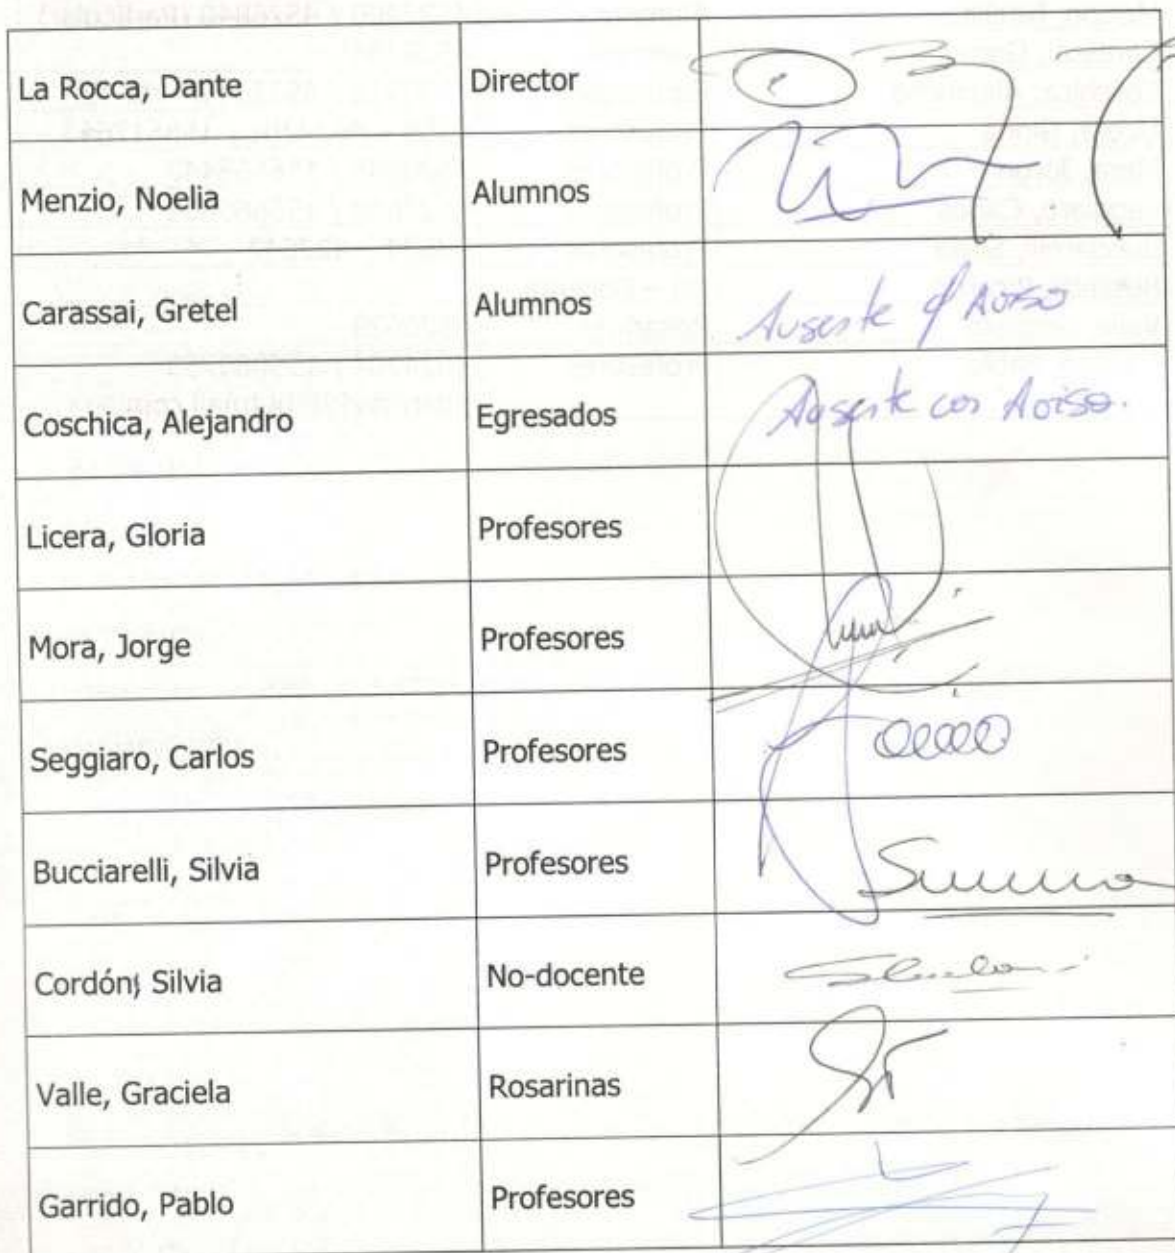 La Rocca, Dante Director
Menzio, Noelia Alumnos
Carassai, Gretel Alumnos Ausente c/ Aviso
Coschica, Alejandro Egresados Ausente con Aviso.
Licera, Gloria Profesores
Mora, Jorge Profesores
Seggiaro, Carlos Profesores
Bucciarelli, Silvia Profesores
Cordón, Silvia No-docente
Valle, Graciela Rosarinas
Garrido, Pablo Profesores